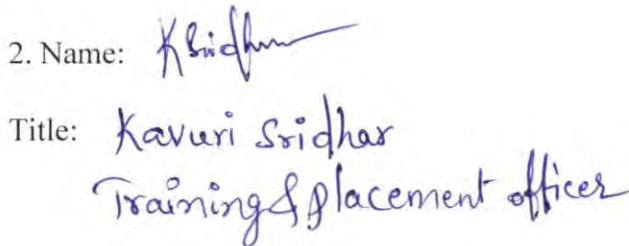 2. Name: KSridhar
Title: Kavuri Sridhar
Training & placement officer